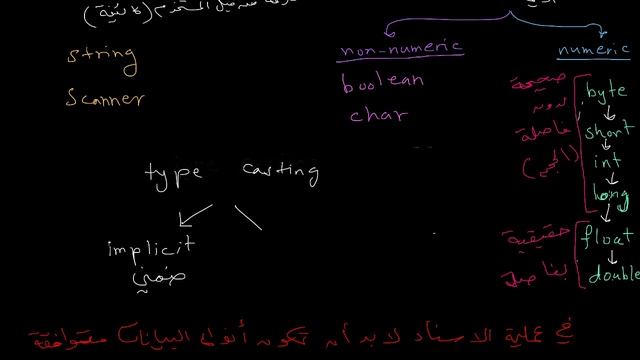 المستخدم (كائنية)
non-numeric
numeric
string
Scanner
boolean
char
صحيحة
بدون
فاصلة
byte
short
int
long
type casting
implicit
ضمني
حقيقية
بفاصلة
float
double
في عملية الاسناد لا بد أن تكون أنواع البيانات متوافقة